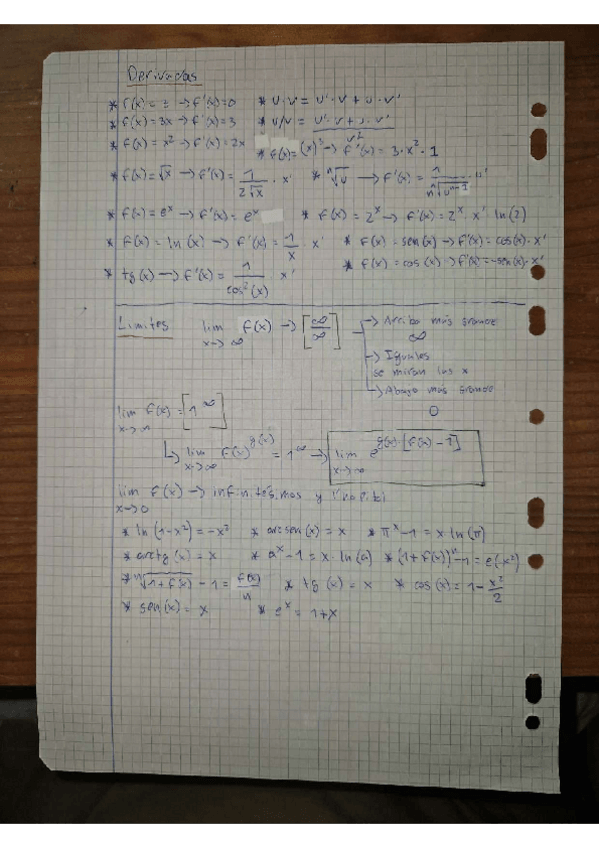 Derivadas
* f(x) = 1 → f'(x) = 0   * u·v = u'·v + u·v'
* f(x) = 3x → f'(x) = 3   * u/v = (u'·v + u·v')/v²
* f(x) = x² → f'(x) = 2x   * f(x) = (x)³ → f'(x) = 3·x²·1
* f(x) = √x → f'(x) = 1/(2√x) · x'   * ⁿ√u → f'(x) = 1/(n ⁿ√(uⁿ⁻¹)) · u'
* f(x) = eˣ → f'(x) = eˣ   * f(x) = 2ˣ → f'(x) = 2ˣ · x' ln(2)
* f(x) = ln(x) → f'(x) = 1/x · x'   * f(x) = sen(x) → f'(x) = cos(x)·x'
* tg(x) → f'(x) = 1/cos²(x) x'   * f(x) = cos(x) → f'(x) = -sen(x)·x'
Limites   lim x→∞ f(x) → [∞/∞] → Arriba más grande
∞
→ Iguales
se miran las x
→ Abajo más grande
0
lim f(x) = [1^∞]
↳ lim x→∞ f(x)^g(x) = 1^∞ → lim x→∞ e^(g(x)·[f(x) - 1])
lim x→0 f(x) → infinitésimos y l'hopibi
* ln(1-x²) = -x²   * arcsen(x) = x   * πˣ - 1 = x·ln(π)
* arctg(x) = x   * aˣ - 1 = x·ln(a)   * (1+f(x))ⁿ - 1 =
* ⁿ√(1+f(x)) - 1 = f(x)/n   * tg(x) = x   * cos(x) = 1 - x²/2
* sen(x) = x   * eˣ = 1+x